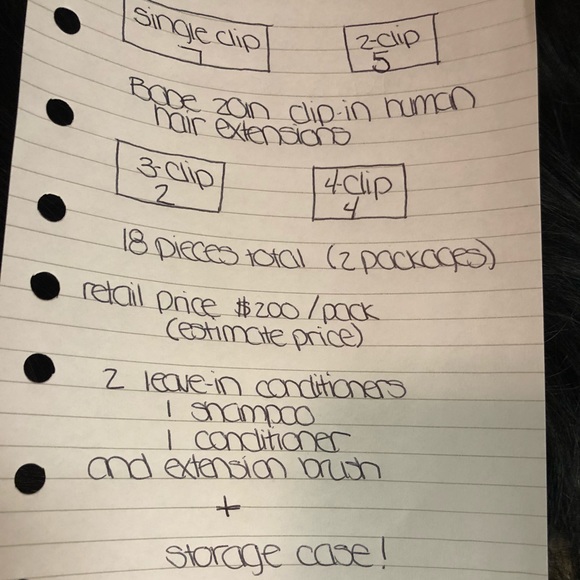 single clip
7
2-clip
5
Bape 20in clip-in human
hair extensions
3-clip
2
4-clip
4
18 pieces total (2 packages)
retail price $200/pack
(estimate price)
2 leave-in conditioners
1 shampoo
1 conditioner
and extension brush
+
storage case!